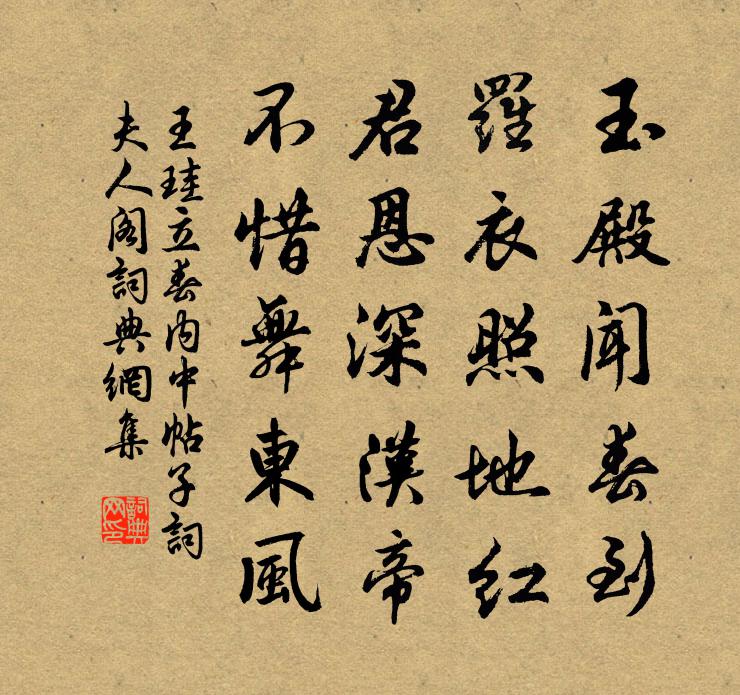 玉殿聞春到
羅衣照地紅
君恩深漢帝
不惜舞東風
王珪立春内中帖子詞
夫人阁詞典網集
詞典网印